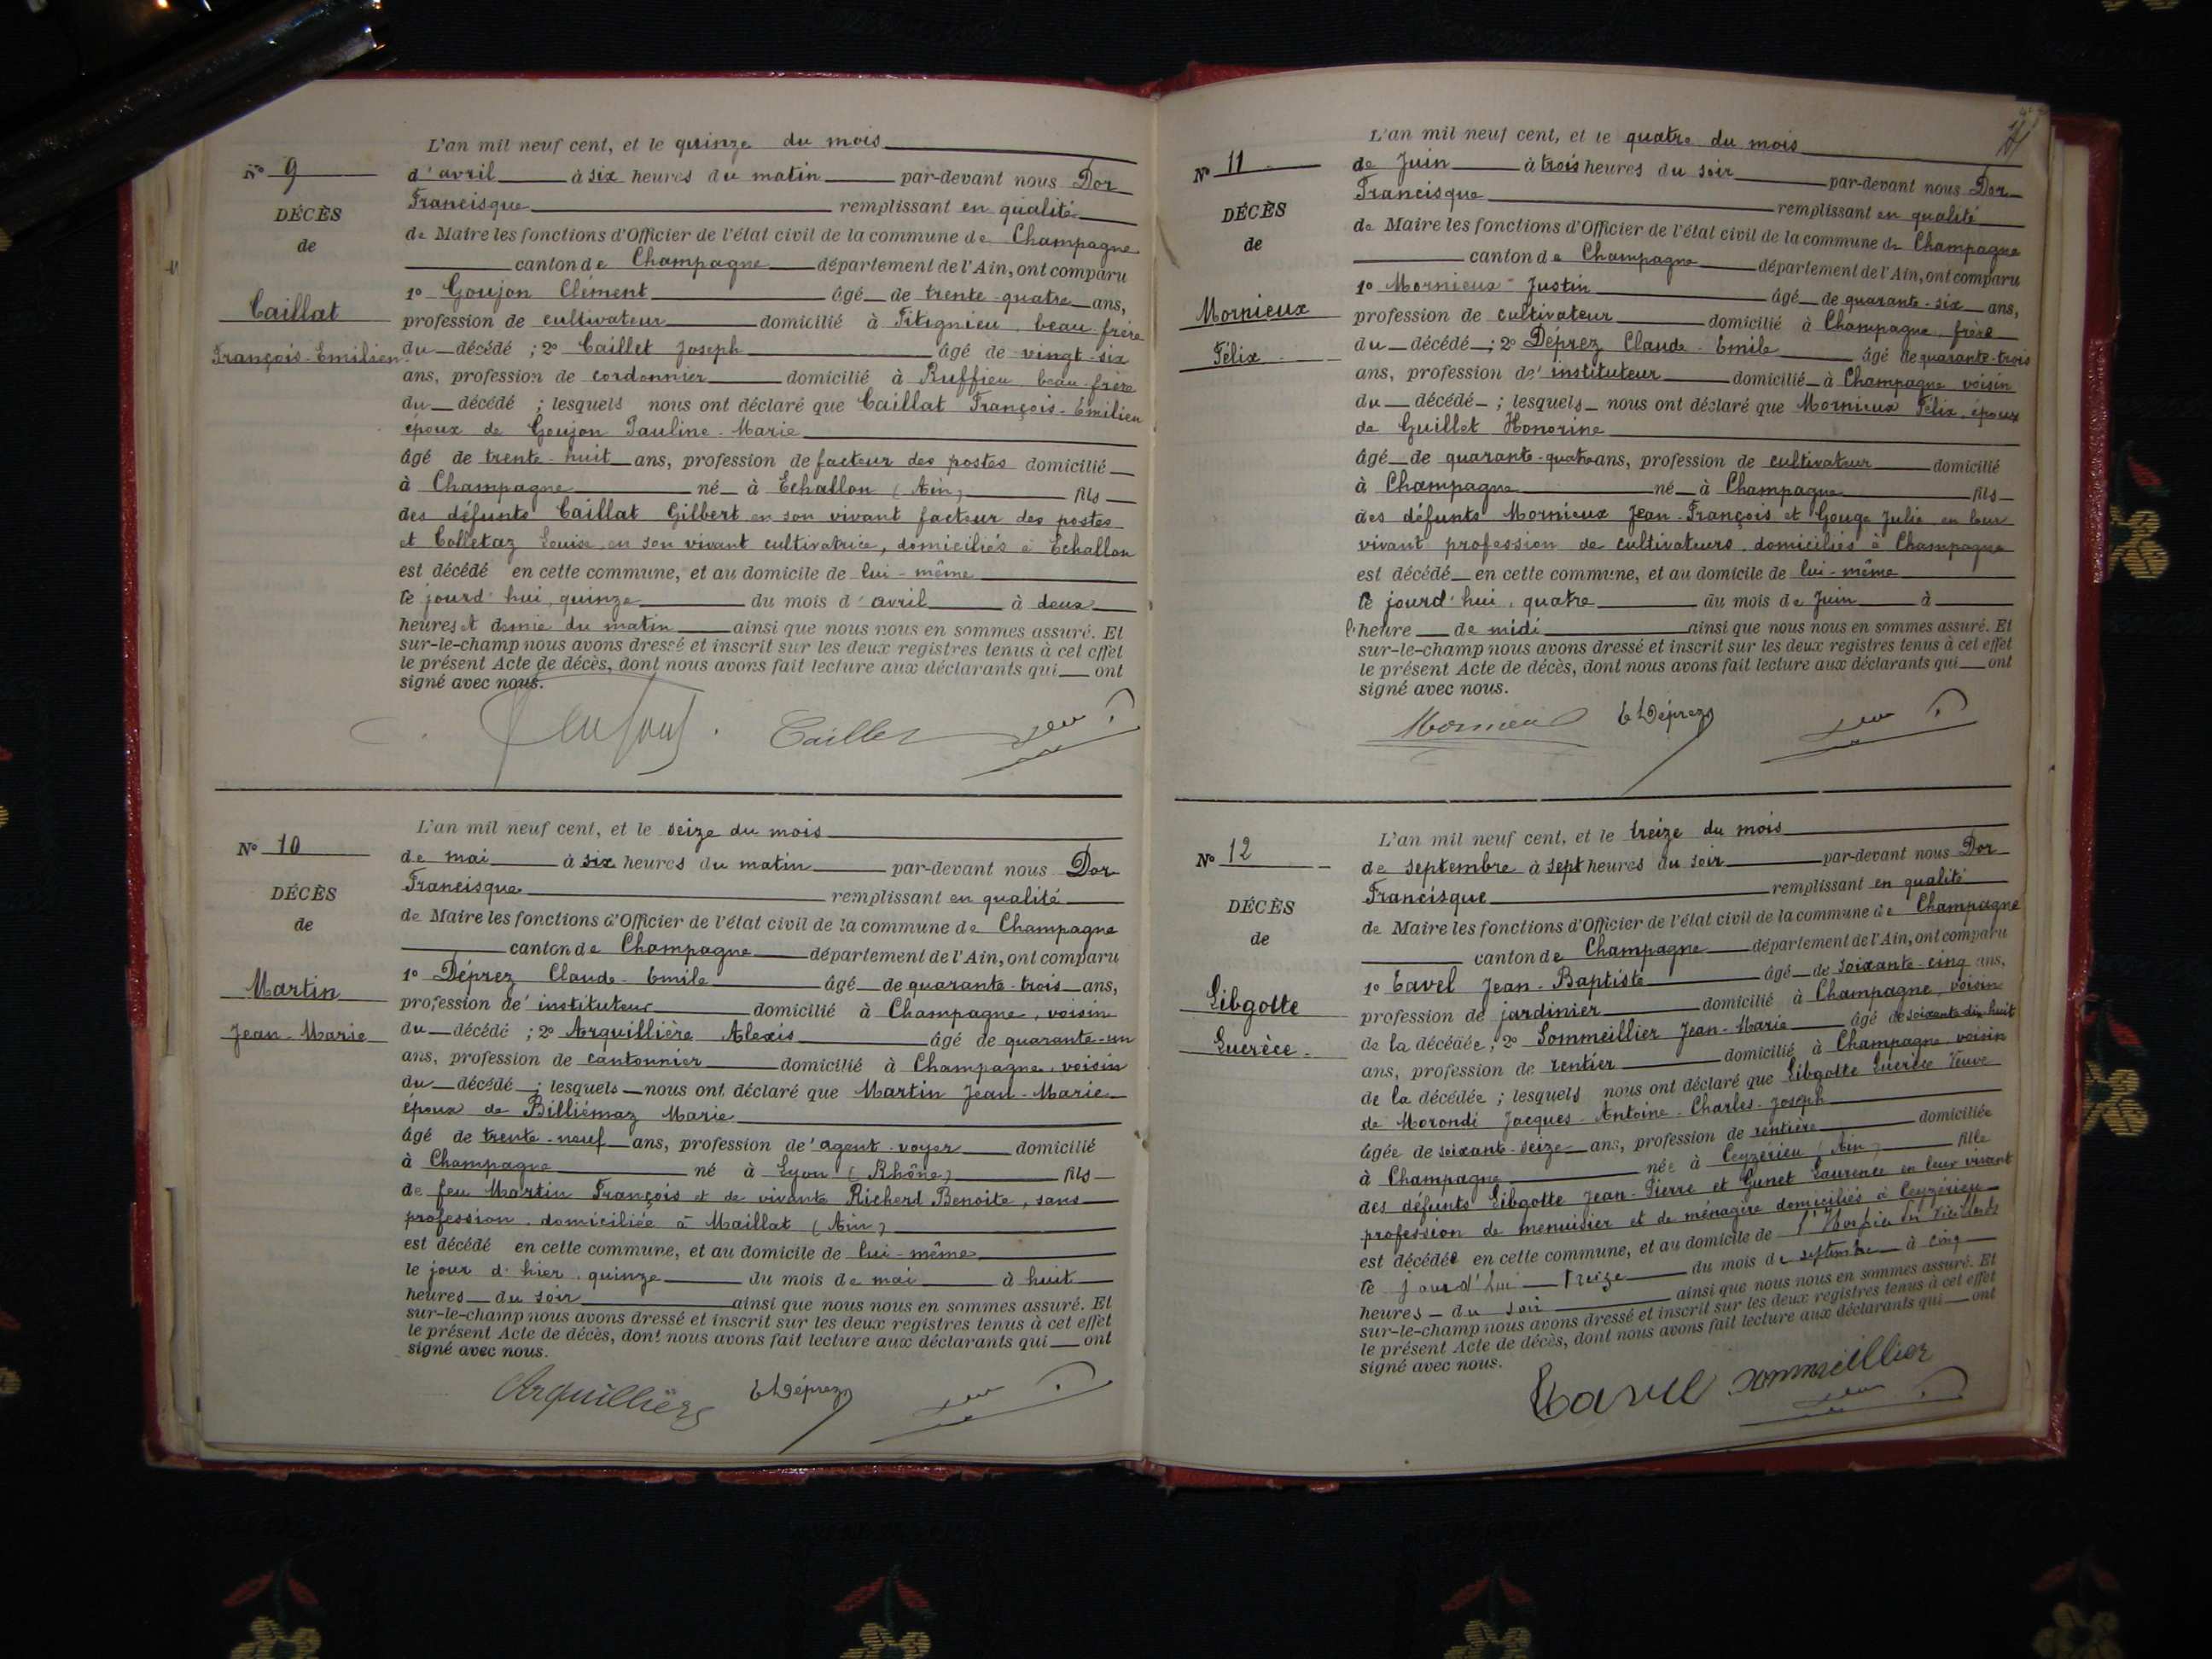 L'an mil neuf cent, et le quinze du mois
N° 9
d'avril à six heures du matin par-devant nous Dor
Francisque remplissant en qualité
DÉCÈS
de Maire les fonctions d'Officier de l'état civil de la commune de Champagne
de
canton de Champagne département de l'Ain, ont comparu
1° Goujon Clément âgé de trente-quatre ans,
Caillat
profession de cultivateur domicilié à Fitignieu, beau-frère
François-Emilien
du décédé ; 2° Caillet Joseph âgé de vingt-six
ans, profession de cordonnier domicilié à Ruffieu beau-frère
du décédé ; lesquels nous ont déclaré que Caillat François-Emilien
époux de Goujon Pauline-Marie
âgé de trente-huit ans, profession de facteur des postes domicilié
à Champagne né à Echallon (Ain) fils
des défunts Caillat Gilbert en son vivant facteur des postes
et Colletaz Louise en son vivant cultivatrice, domiciliés à Echallon
est décédé en cette commune, et au domicile de lui-même
le jourd'hui, quinze du mois d'avril à deux
heures et demie du matin ainsi que nous nous en sommes assuré. Et
sur-le-champ nous avons dressé et inscrit sur les deux registres tenus à cet effet
le présent Acte de décès, dont nous avons fait lecture aux déclarants qui ont
signé avec nous.
Caillet
L'an mil neuf cent, et le seize du mois
N° 10
de mai à six heures du matin par-devant nous Dor
Francisque remplissant en qualité
DÉCÈS
de Maire les fonctions d'Officier de l'état civil de la commune de Champagne
de
canton de Champagne département de l'Ain, ont comparu
1° Déprez Claude-Emile âgé de quarante-trois ans,
Martin
profession de instituteur domicilié à Champagne, voisin
Jean-Marie
du décédé ; 2° Arquillière Alexis âgé de quarante-un
ans, profession de cantonnier domicilié à Champagne, voisin
du décédé ; lesquels nous ont déclaré que Martin Jean-Marie
époux de Billiémaz Marie
âgé de trente-neuf ans, profession de agent-voyer domicilié
à Champagne né à Lyon (Rhône) fils
de feu Martin François et de vivante Richerd Benoite, sans
profession, domiciliée à Maillat (Ain)
est décédé en cette commune, et au domicile de lui-même
le jour d'hier, quinze du mois de mai à huit
heures du soir ainsi que nous nous en sommes assuré. Et
sur-le-champ nous avons dressé et inscrit sur les deux registres tenus à cet effet
le présent Acte de décès, dont nous avons fait lecture aux déclarants qui ont
signé avec nous.
Arquillière E Déprez
L'an mil neuf cent, et le quatre du mois
N° 11
de Juin à trois heures du soir par-devant nous Dor
Francisque remplissant en qualité
DÉCÈS
de Maire les fonctions d'Officier de l'état civil de la commune de Champagne
de
canton de Champagne département de l'Ain, ont comparu
1° Mornieux Justin âgé de quarante-six ans,
Mornieux
profession de cultivateur domicilié à Champagne, frère
Félix
du décédé ; 2° Déprez Claude-Emile âgé de quarante-trois
ans, profession de instituteur domicilié à Champagne voisin
du décédé ; lesquels nous ont déclaré que Mornieux Félix, époux
de Guillet Honorine
âgé de quarante-quatre ans, profession de cultivateur domicilié
à Champagne né à Champagne fils
des défunts Mornieux Jean-François et Gouge Julie en leur
vivant profession de cultivateurs, domiciliés à Champagne
est décédé en cette commune, et au domicile de lui-même
le jourd'hui, quatre du mois de Juin à
l'heure de midi ainsi que nous nous en sommes assuré. Et
sur-le-champ nous avons dressé et inscrit sur les deux registres tenus à cet effet
le présent Acte de décès, dont nous avons fait lecture aux déclarants qui ont
signé avec nous.
Mornieux E Déprez
L'an mil neuf cent, et le treize du mois
N° 12
de septembre à sept heures du soir par-devant nous Dor
Francisque remplissant en qualité
DÉCÈS
de Maire les fonctions d'Officier de l'état civil de la commune de Champagne
de
canton de Champagne département de l'Ain, ont comparu
1° Tavel Jean-Baptiste âgé de soixante-cinq ans,
Libgotte
profession de jardinier domicilié à Champagne, voisin
Lucrèce
de la décédée ; 2° Sommeillier Jean-Marie âgé de soixante-dix-huit
ans, profession de rentier domicilié à Champagne, voisin
de la décédée ; lesquels nous ont déclaré que Libgotte Lucrèce Veuve
de Morondi Jacques-Antoine-Charles-Joseph
âgée de soixante-seize ans, profession de rentière domiciliée
à Champagne née à Ceyzérieu (Ain) fille
des défunts Libgotte Jean-Pierre et Gunet Laurence en leur vivant
profession de menuisier et de ménagère domiciliés à Ceyzérieu
est décédée en cette commune, et au domicile de l'Hospice des vieillards
le jourd'hui treize du mois de septembre à cinq
heures du soir ainsi que nous nous en sommes assuré. Et
sur-le-champ nous avons dressé et inscrit sur les deux registres tenus à cet effet
le présent Acte de décès, dont nous avons fait lecture aux déclarants qui ont
signé avec nous.
Tavel Sommeillier